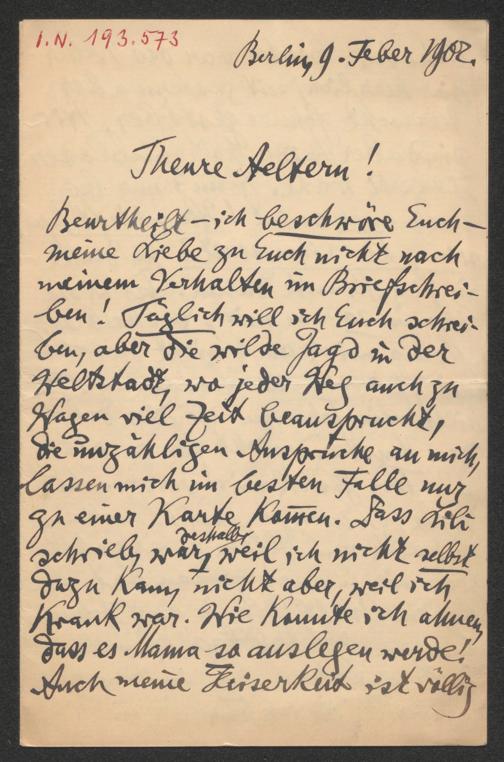 I.N. 193.573
Berlin, 9. Feber 1902.
Theure Aeltern!
Beurtheilt – ich beschwöre Euch –
meine Liebe zu Euch nicht nach
meinem Verhalten im Briefschrei-
ben! Täglich will ich Euch schrei-
ben, aber die wilde Jagd in der
Weltstadt, wo jeder Weg auch zu
Wagen viel Zeit beansprucht,
die unzähligen Ansprüche an mich,
lassen mich im besten Falle nur
zu einer Karte kommen. Dass Lili
deshalb
schrieb, war, weil ich nicht selbst
dazu kam, nicht aber, weil ich
krank war. Wie konnte ich ahnen,
dass es Mama so auslegen werde!
Auch meine Heiserkeit ist völlig